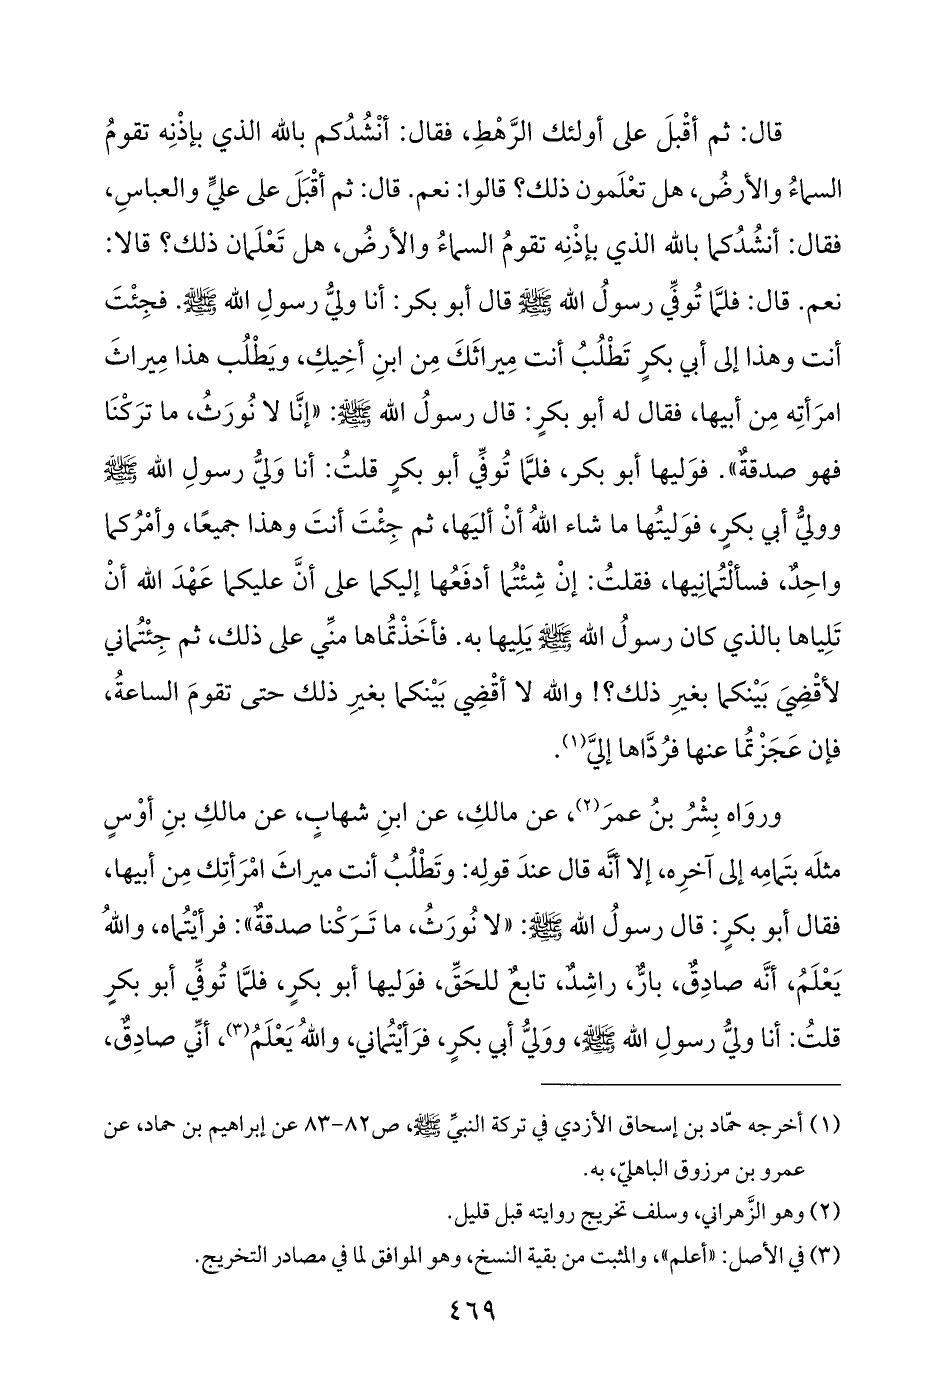 قال: ثم أقْبلَ على أولئك الرَّهْطِ، فقال: أنْشُدُكم بالله الذي بإذْنِه تقومُ
السماءُ والأرضُ، هل تعْلَمون ذلك؟ قالوا: نعم. قال: ثم أقْبَلَ على عليٍّ والعباسِ،
فقال: أنشُدُكما بالله الذي بإذْنِه تقومُ السماءُ والأرضُ، هل تَعْلَمان ذلك؟ قالا:
نعم. قال: فلمَّا تُوفِّي رسولُ الله ﷺ قال أبو بكر: أنا وليُّ رسولِ الله ﷺ. فجِئْتَ
أنت وهذا إلى أبي بكرٍ تَطْلُبُ أنت مِيراثَكَ مِن ابنِ أخِيكِ، ويَطْلُب هذا مِيراثَ
امرَأتِه مِن أبيها، فقال له أبو بكرٍ: قال رسولُ الله ﷺ: «إنَّا لا نُورَثُ، ما ترَكْنَا
فهو صدقةٌ». فوَليها أبو بكر، فلمَّا تُوفِّي أبو بكرٍ قلتُ: أنا وَليُّ رسولِ الله ﷺ
ووليُّ أبي بكرٍ، فوَليتُها ما شاء اللهُ أنْ أليَها، ثم جِئْتَ أنتَ وهذا جميعًا، وأمْرُكما
واحِدٌ، فسألْتُمانِيها، فقلتُ: إنْ شِئْتُما أدفَعُها إليكما على أنَّ عليكما عَهْدَ الله أنْ
تَلِياها بالذي كان رسولُ الله ﷺ يَلِيها به. فأخَذْتُماها منِّي على ذلك، ثم جِئْتُماني
لأقْضِيَ بَيْنكما بغيرِ ذلك؟! والله لا أقْضِي بَيْنكما بغيرِ ذلك حتى تقومَ الساعةُ،
فإن عَجَزْتُما عنها فرُدَّاها إليَّ(١).
وروَاه بِشْرُ بنُ عمرَ(٢)، عن مالكِ، عن ابنِ شهابٍ، عن مالكِ بنِ أوْسٍ
مثلَه بتَمامِه إلى آخرِه، إلا أنَّه قال عندَ قولِه: وتَطْلُبُ أنت ميراثَ امْرَأتِك مِن أبيها،
فقال أبو بكرٍ: قال رسولُ الله ﷺ: «لا نُورَثُ، ما تَـرَكْنا صدقةٌ»: فرأيْتُماه، واللهُ
يَعْلَمُ، أنَّه صادِقٌ، بارٌّ، راشِدٌ، تابعٌ للحَقِّ، فوَليها أبو بكرٍ، فلمَّا تُوفِّي أبو بكرٍ
قلتُ: أنا وليُّ رسولِ الله ﷺ، ووَليُّ أبي بكرٍ، فرَأيْتُماني، واللهُ يَعْلَمُ(٣)، أنِّي صادِقٌ،
(١) أخرجه حمّاد بن إسحاق الأزدي في تركة النبيِّ ﷺ، ص٨٢-٨٣ عن إبراهيم بن حماد، عن
عمرو بن مرزوق الباهليّ، به.
(٢) وهو الزَّهراني، وسلف تخريج روايته قبل قليل.
(٣) في الأصل: «أعلم»، والمثبت من بقية النسخ، وهو الموافق لما في مصادر التخريج.
٤٦٩